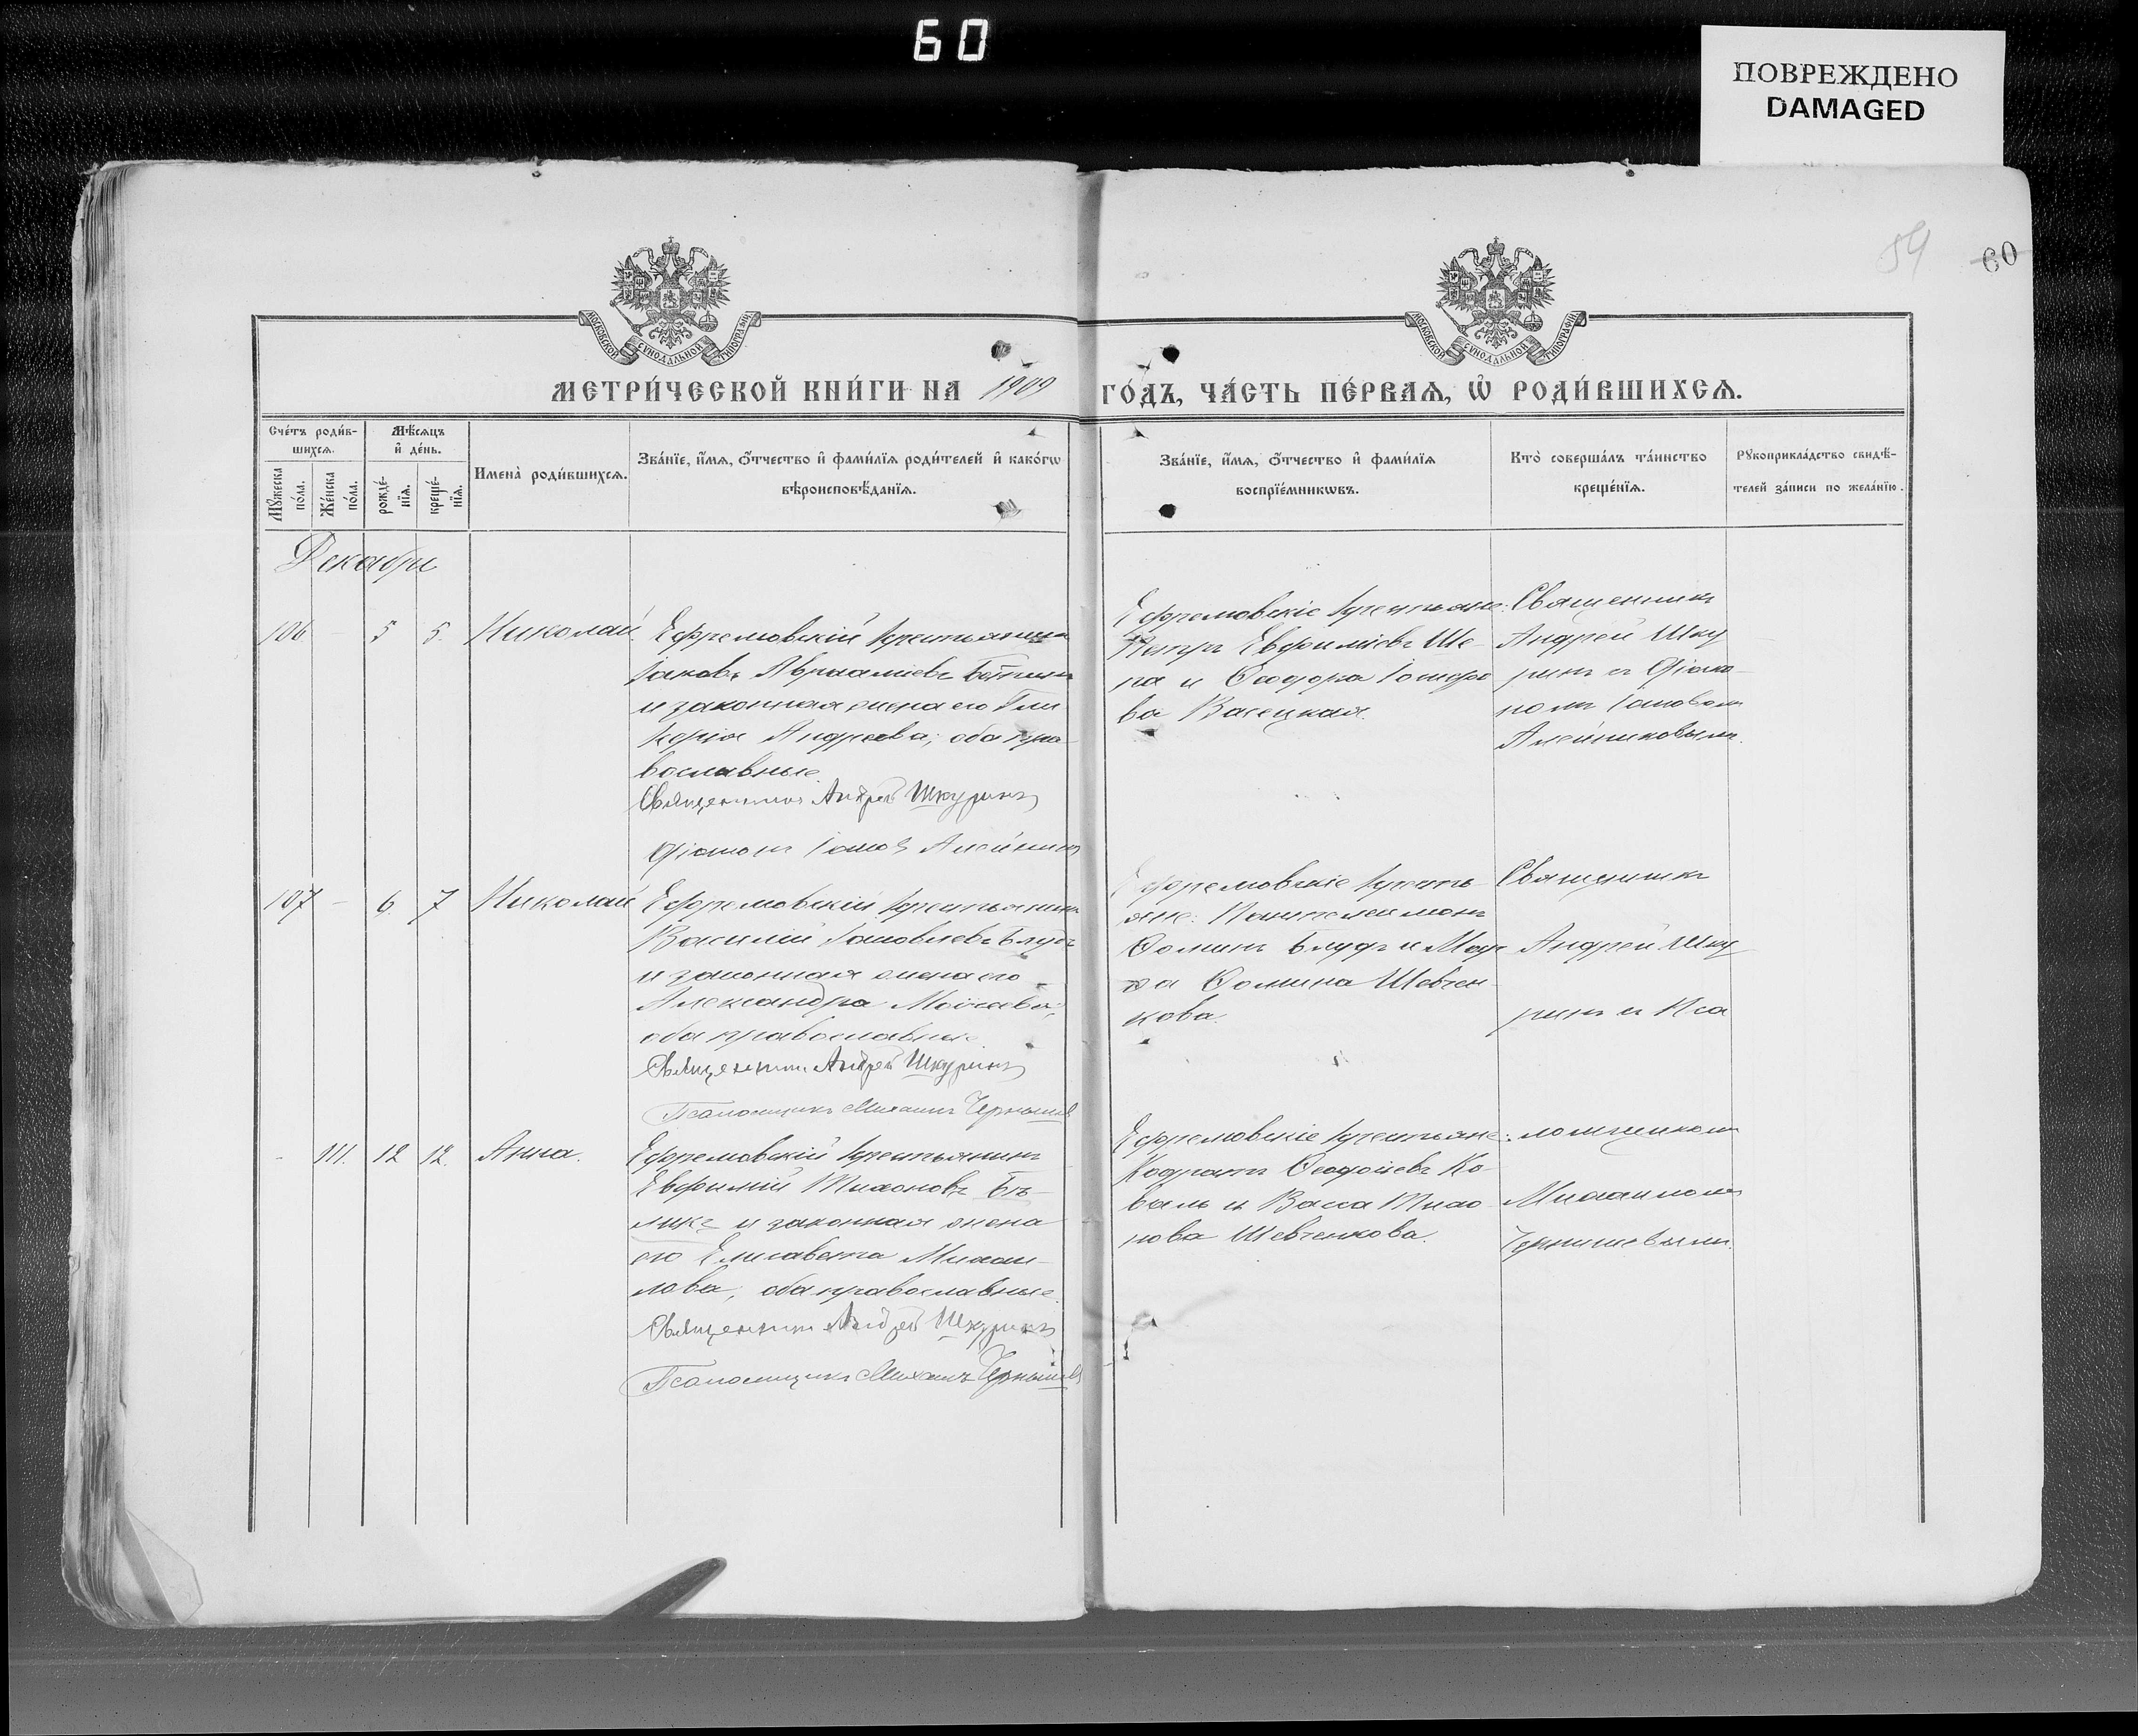 60
ПОВРЕЖДЕНО
DAMAGED
59
60
МОСКОВСКОЙ СѴНОДАЛЬНОЙ ТИПОГРАФІИ
МОСКОВСКОЙ СѴНОДАЛЬНОЙ ТИПОГРАФІИ
МЕТРИ́ЧЕСКОЙ КНИ́ГИ НА 1909
ГО́ДЪ, ЧА́СТЬ ПЕ́РВАѦ, Ѡ҆ РОДИ́ВШИХСѦ.
Сче́тъ роди́в-
шихсѧ.
Мꙋ́жеска
по́ла.
Же́нска
по́ла.
Мѣ́сѧцъ
и҆ де́нь.
рожде́-
нїѧ.
креще́-
нїѧ.
Имена̀ роди́вшихсѧ.
Зва́нїе, и҆́мѧ, ѻ҆́тчество и҆ фами́лїѧ роди́телей и҆ како́гѡ
вѣроисповѣ́данїѧ.
Зва́нїе, и҆́мѧ, ѻ҆́тчество и҆ фами́лїѧ
воспрїе́мникѡвъ.
Кто̀ соверша́лъ та́инство
креще́нїѧ.
Рꙋкоприкла́дство свидѣ́-
телей за́писи по жела́нїю.
Декабрь
106 - 5 5. Николай.
Ефремовскій крестьянинъ
Іаковъ Аврааміевъ
и законная жена его Гли
керія Андреева; оба пра
вославные.
Священникъ Андрей Шкуринъ
Діаконъ Іаковъ Алейников
Ефремовскіе крестьяне:
Петръ Евфиміевъ Ше-
па и Ѳеодора Іосифо
ва Васецкая.
Священникъ
Андрей Шку
ринъ съ Діако-
номъ Іаковомъ
Алейниковымъ.
107 - 6. 7 Николай
Ефремовскій крестьянинъ
Василій Іаковлевъ Блудъ
и законная жена его
Александра Моисеева;
оба православные.
Священникъ Андрей Шкуринъ
Псаломщикъ Михаилъ Чернышев
Ефремовскіе кресть-
яне: Пантелеимонъ
Ѳоминъ Блудъ и Мар
ѳа Ѳомина Шевчен-
кова.
Священникъ
Андрей Шку
ринъ съ Пса
- 111. 12 12. Анна.
Ефремовскій крестьянинъ
Евфимій Тихоновъ Бѣ-
ликъ и законная жена
его Елисавета Михаи-
лова; оба православные.
Священникъ Андрей Шкуринъ
Псаломщикъ Михаилъ Чернышев
Ефремовскіе крестьяне:
Кодратъ Ѳеодосіевъ Ко-
валь и Васса Тихо-
нова Шевченкова.
ломщикомъ
Михаиломъ
Чернышевымъ.